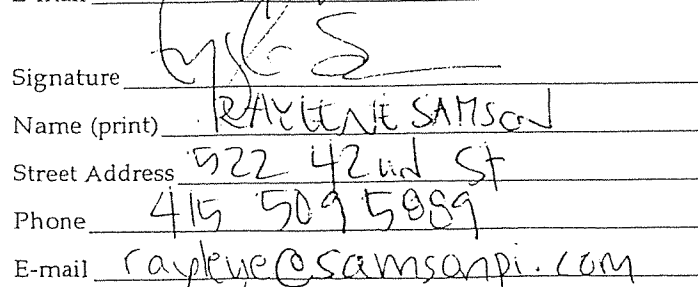 Signature
Name (print) RAYLENE SAMSON
Street Address 522 42nd St
Phone 415 509 5889
E-mail rayleye@samsonpi.com